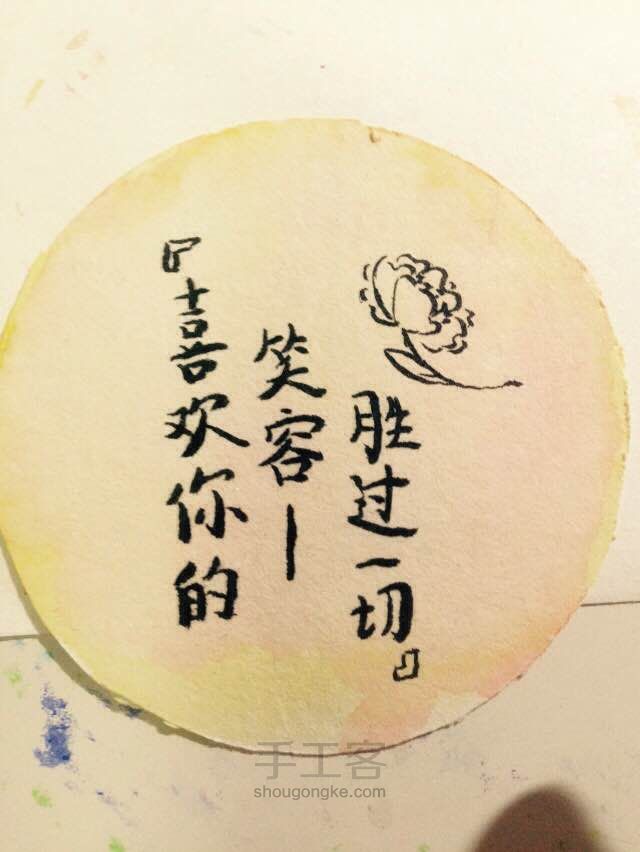 『喜欢你的
笑容—
胜过一切』
手工客
shougongke.com